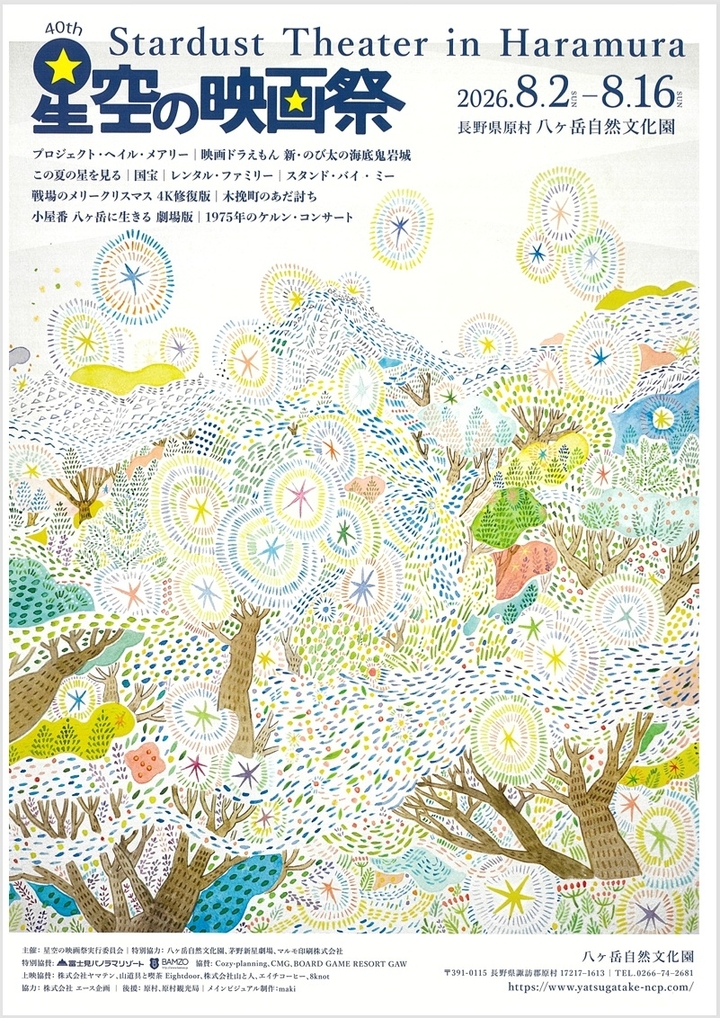 40th
Stardust Theater in Haramura
星空の映画祭
2026.8.2 SUN – 8.16 SUN
長野県原村 八ヶ岳自然文化園
プロジェクト・ヘイル・メアリー｜映画ドラえもん 新・のび太の海底鬼岩城
この夏の星を見る｜国宝｜レンタル・ファミリー｜スタンド・バイ・ミー
戦場のメリークリスマス 4K修復版｜木挽町のあだ討ち
小屋番 八ヶ岳に生きる 劇場版｜1975年のケルン・コンサート
主催：星空の映画祭実行委員会｜特別協力：八ヶ岳自然文化園、茅野新星劇場、マルモ印刷株式会社
特別協賛：富士見パノラマリゾート BAMZO 協賛：Cozy-planning、CMG、BOARD GAME RESORT GAW
上映協賛：株式会社ヤマテン、山道具と喫茶 Eightdoor、株式会社山と人、エイチコーヒー、8knot
協力：株式会社 エース企画 ｜ 後援：原村、原村観光局｜メインビジュアル制作：maki
八ヶ岳自然文化園
〒391-0115 長野県諏訪郡原村 17217-1613｜TEL.0266-74-2681
https://www.yatsugatake-ncp.com/